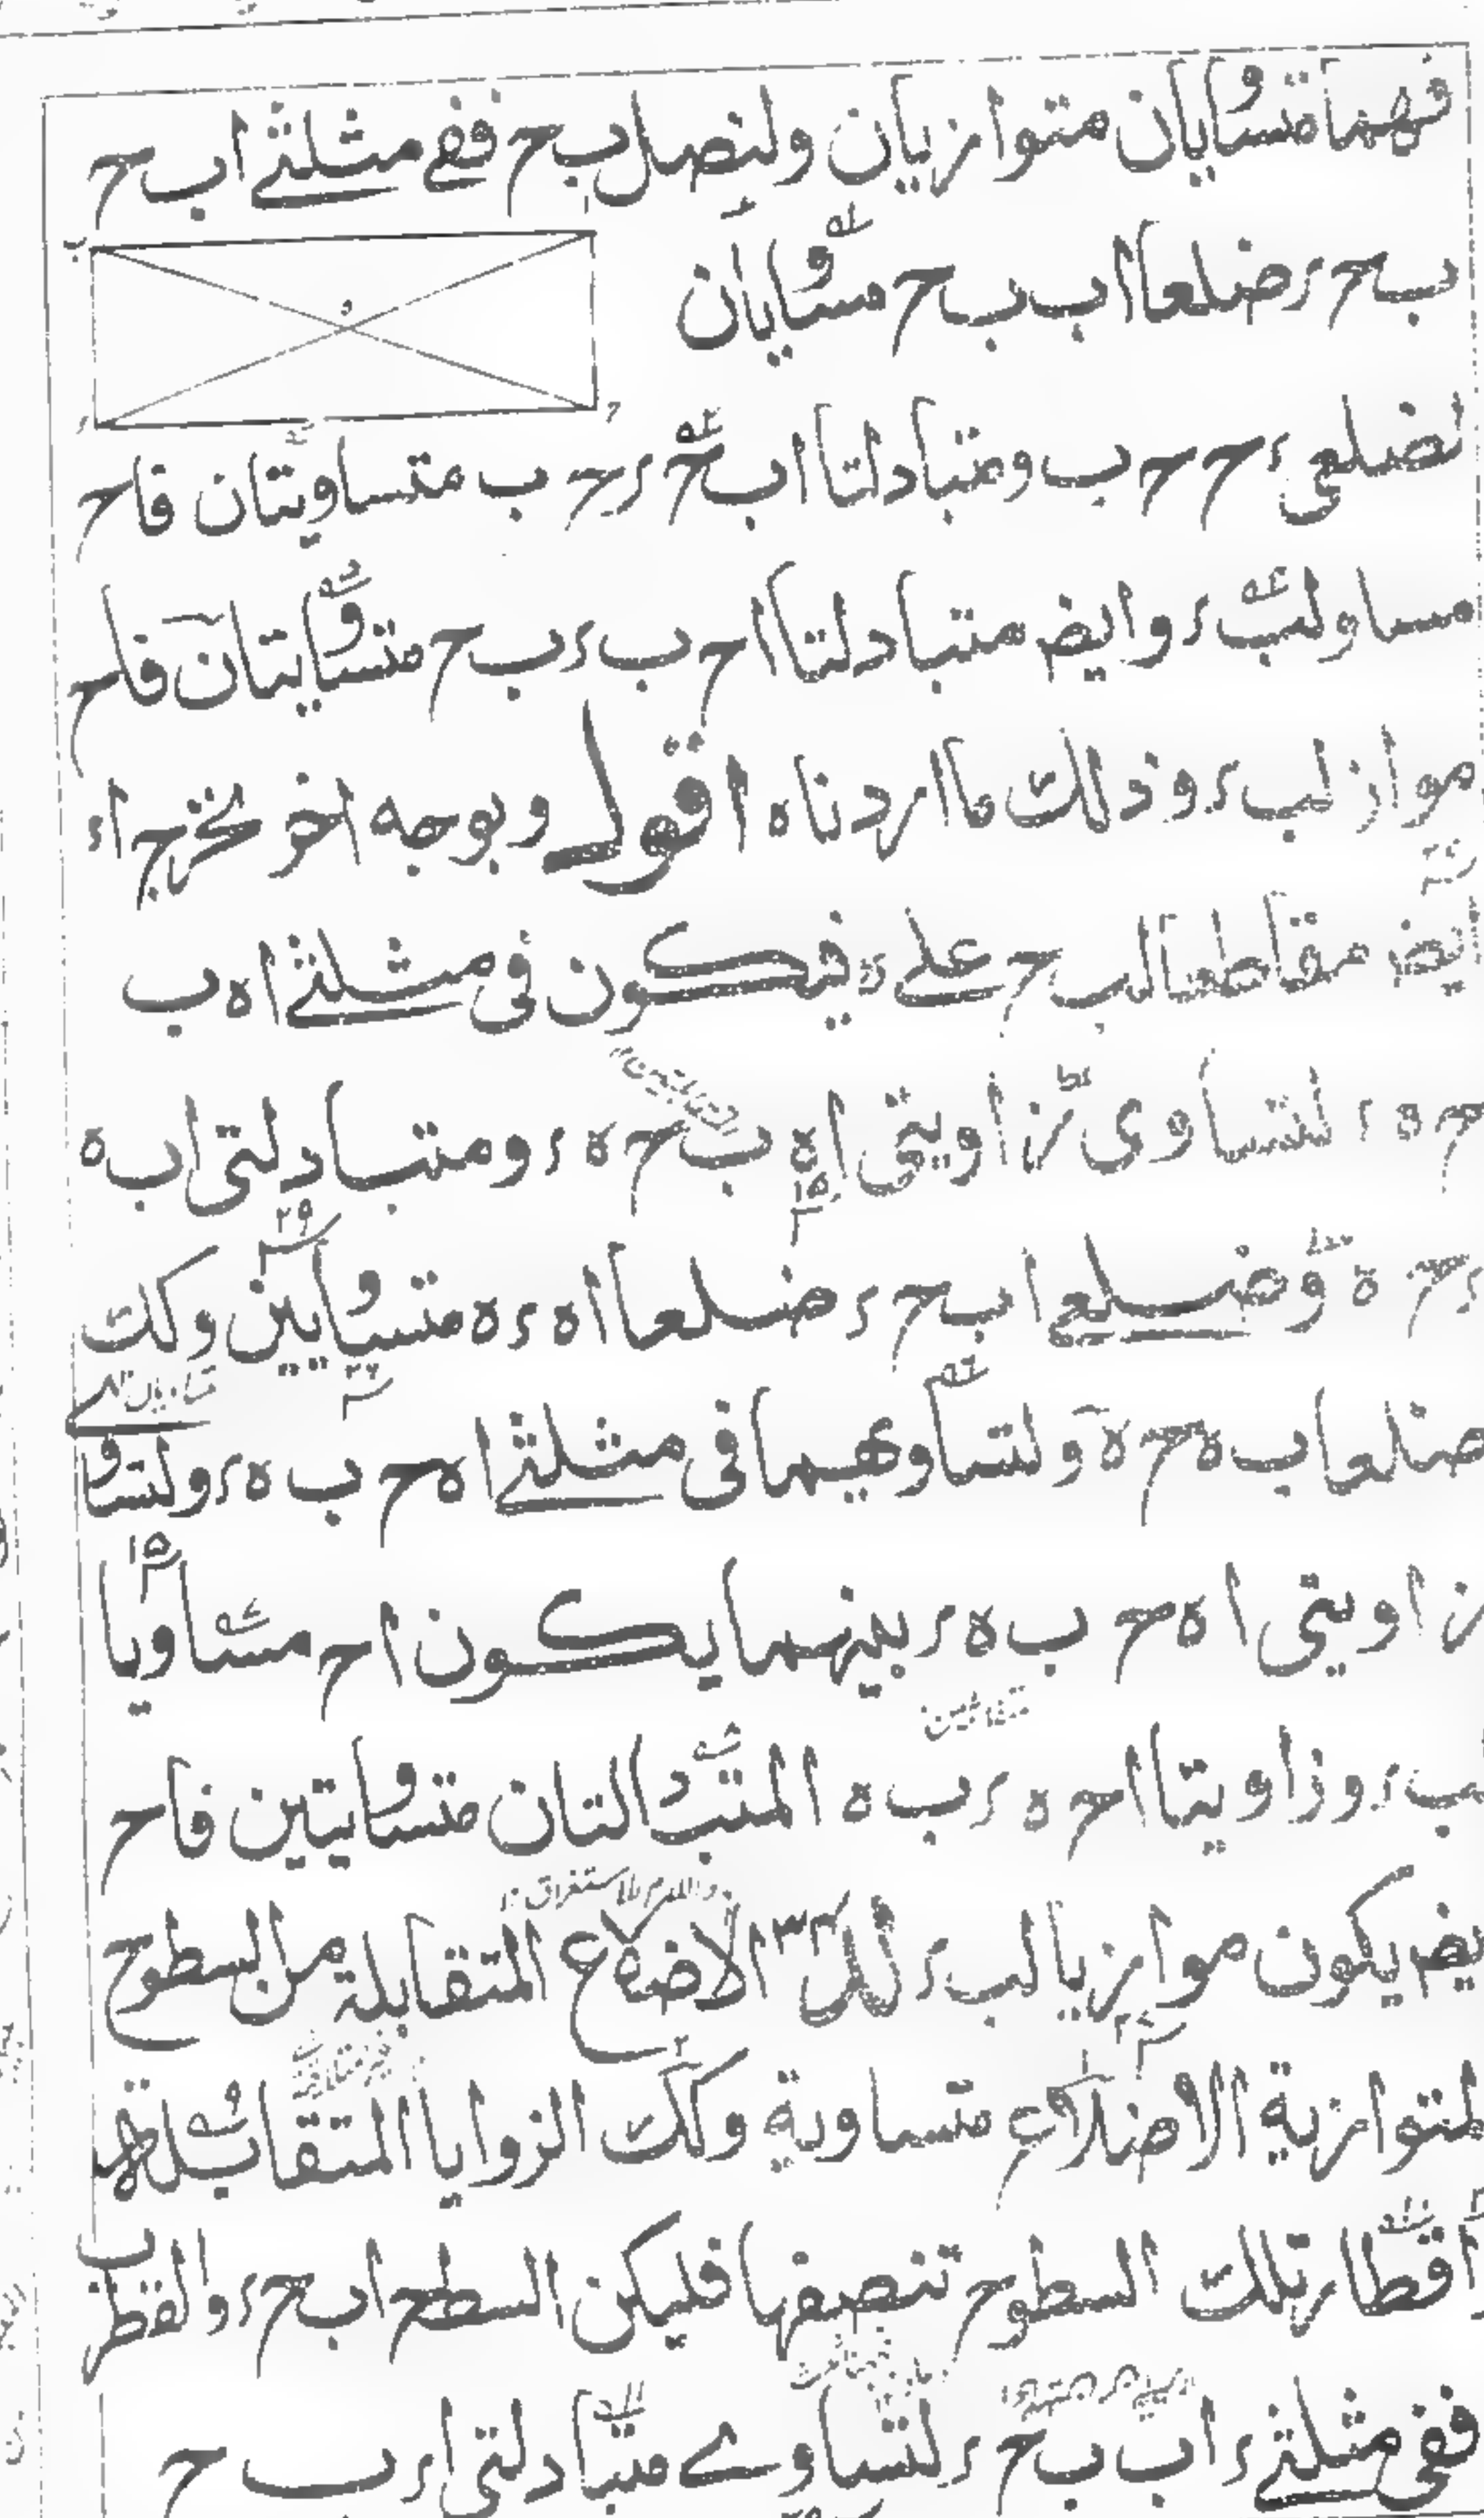 فهما متساويان متوازيان ولنصل ب ح ففي مثلثي ا ب ح
ب ح ء ضلعا ا ب ب ح مساويان
لضلعي ء ح ح ب ومتبادلتا ا ب ح ء ح ب متساويتان فا ح
مساو لب ء وايض متبادلتا ا ح ب ء ب ح متساويتان فا ح
مواز لب ء وذلك ما اردناه اقول وبوجه اخر نخرج ا ء
ايض مقاطعا لب ح على ه فيكون في مثلثي ا ه ب
ح ه ء لتساوى زاويتى ا ه ب ح ه ء ومتبادلتى ا ب ه
ء ح ه وضلعى ا ب ح ء ضلعا ا ه ء ه متساويين وكك
ضلعا ب ه ح ه ولتساويهما فى مثلثى ا ه ح ب ه ء ولتساوى
زاويتى ا ه ح ب ه ء بينهما يكون ا ح مساويا
لب ء وزاويتا ا ح ه ء ب ه المتبادلتان متساويتين فا ح
ايض يكون موازيا لب ء لد ٣٣ الاضلاع المتقابلة من السطوح
المتوازية الاضلاع متساوية وكك الزوايا المتقابلة
اقطار تلك السطوح تنصفها فليكن السطح ا ب ح ء والقطر ب
ففى مثلثى ء ا ب ب ح ء لتساوى متبادلتى ا ء ب ح